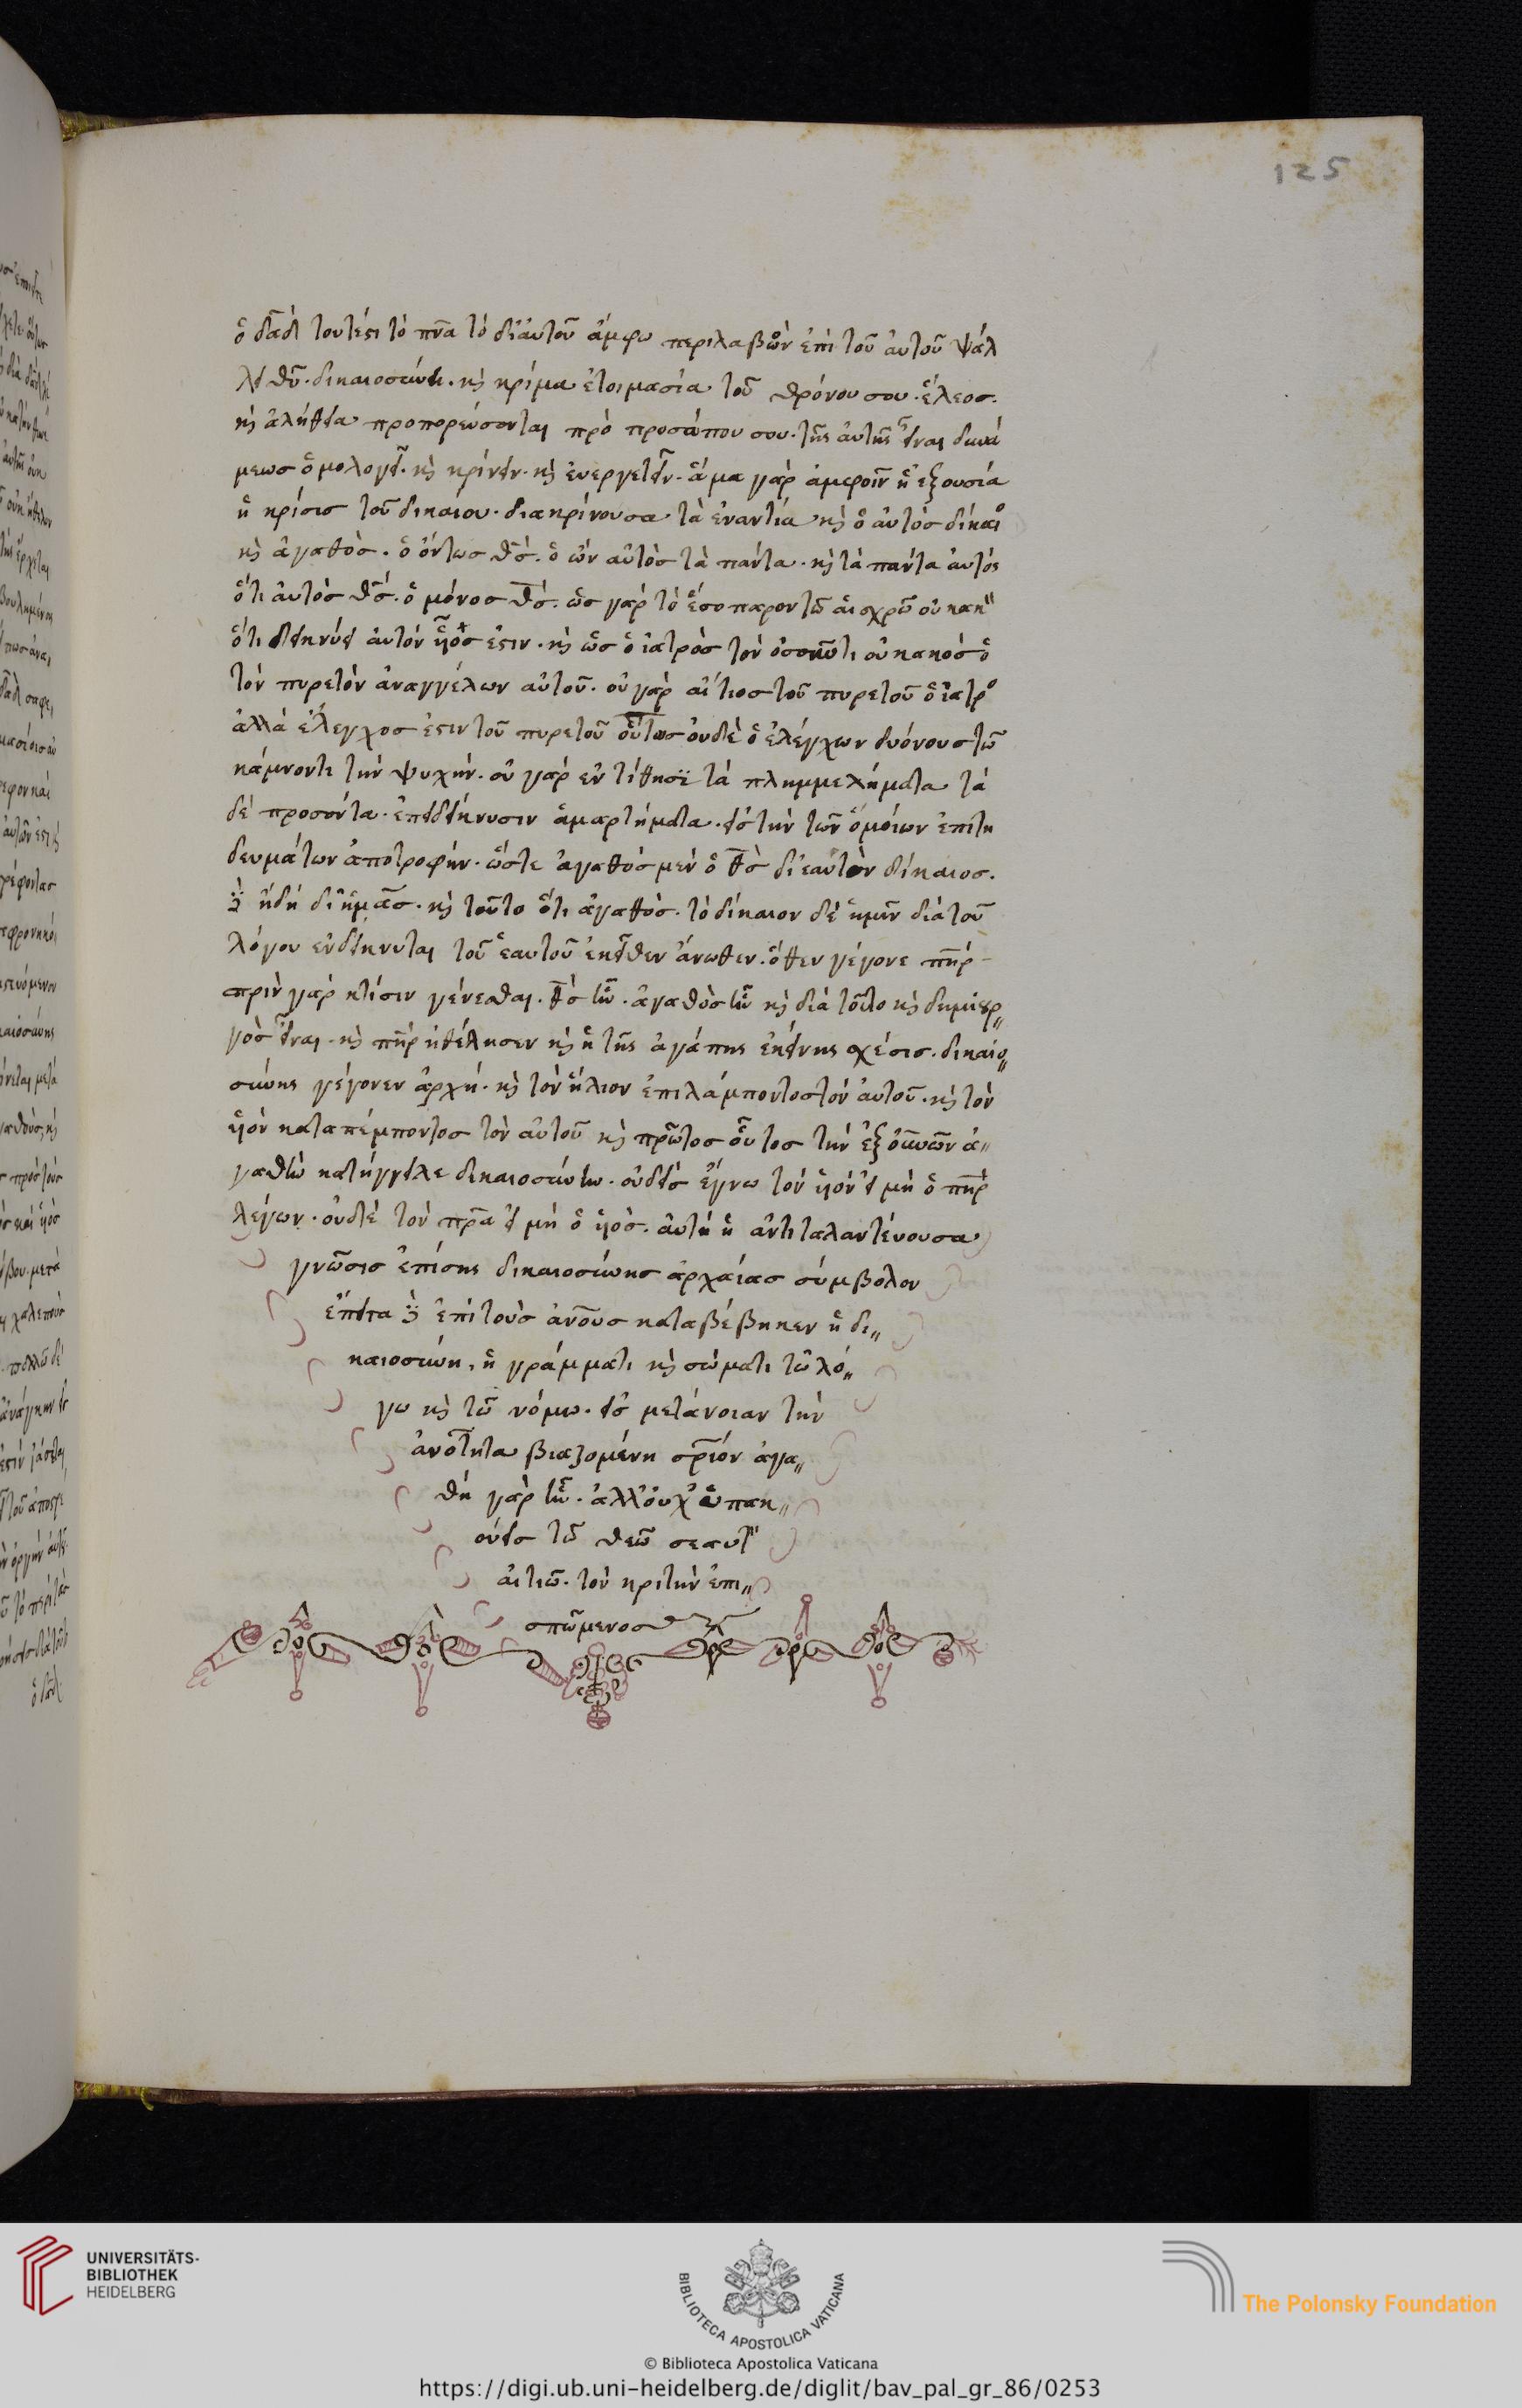 125
ὁ δᾱδ τουτέστι τὸ πν̄α τὸ δι' αὐτοῦ ἄμφω περιλαβὼν ἐπὶ τοῦ αὐτοῦ ψάλ
λει θῡ. δικαιοσύνη. κ̀ κρίμα ἑτοιμασία τοῦ θρόνου σου. ἔλεος.
κ̀ ἀλήθεια προπορεύσονται πρὸ προσώπου σου. τῆς αὐτῆς εἶναι δυνά
μεως ὁμολογεῖ. κ̀ κρίνειν. κ̀ εὐεργετεῖν. ἅμα γὰρ ἀμφοῖν ἡ ἐξουσία
ἡ κρίσις τοῦ δικαίου. διακρίνουσα τὰ ἐναντία κ̀ ὁ αὐτὸς δίκαιο
κ̀ ἀγαθὸς. ὁ ὄντως θς̄. ὁ ὢν αὐτὸς τὰ πάντα. κ̀ τὰ πάντα αὐτός
ὅτι αὐτὸς θς̄. ὁ μόνος θς̄. ὡς γὰρ τὸ ἔσοπαρον τῶ αἰσχρῶ οὐ κακ
ὅτι δεικνύει αὐτὸν οἷός ἐστιν. κ̀ ὡς ὁ ἰατρὸς τὸν οὐ κακὸς ὁ
τὸν πυρετὸν ἀναγγέλων αὐτοῦ. οὐ γὰρ αἴτιος τοῦ πυρετοῦ ὁ ἰατρο
ἀλλὰ ἔλεγχος ἐστιν τοῦ πυρετοῦ οὕτως οὐδὲ ὁ ἐλέγχων δυόνους τῶ
κάμνοντι τὴν ψυχήν. οὐ γὰρ ἐντίθησϊ τὰ πλημμελήματα τὰ
δὲ προσόντα. ἐπιδείκνυσιν ἁμαρτήματα. εἰς τὴν τῶν ὁμοίων ἐπιτη
δευμάτων ἀποτροφήν. ὥστε ἀγαθὸς μὲν ὁ θς̄ δι' ἑαυτὸν δίκαιος.
δὲ ἤδη δι' ἡμᾶς. κ̀ τοῦτο ὅτι ἀγαθὸς. τὸ δίκαιον δὲ ἡμῖν διὰ τοῦ
λόγου ἐνδείκνυται τοῦ ἑαυτοῦ ἐκεῖθεν ἄνωθεν. ὅθεν γέγονε πη̄ρ
πρὶν γὰρ κτίσιν γένεσθαι. θς̄ ἦν. ἀγαθὸς ἦν κ̀ διὰ τοῦτο κ̀ δημιουρ
γὸς εἶναι. κ̀ πη̄ρ ἠθέλησεν κ̀ ἡ τῆς ἀγάπης ἐκείνης σχέσις. δικαιο
σύνης γέγονεν ἀρχή. κ̀ τὸν ἥλιον ἐπιλάμποντος τὸν αὐτοῦ. κ̀ τὸν
υἱὸν καταπέμποντος τὸν αὐτοῦ κ̀ πρῶτος οὗτος τὴν ἐξ οὐ̄νῶν ἀ
γαθὴν κατήγγειλε δικαιοσύνην. οὐδεὶς ἔγνω τὸν υἱὸν εἰ μὴ ὁ πη̄ρ
λέγων. οὐδὲ τὸν πρ̄α εἰ μὴ ὁ υἱός. αὐτὴ ἡ ἀντιταλαντεύουσα
γνῶσις ἐπίσης δικαιοσύνης ἀρχαίας σύμβολον
ἔπειτα δὲ ἐπὶ τοὺς ἀν̄ους καταβέβηκεν ἡ δι
καιοσύνη, ἡ γράμματι κ̀ σώματι τῶ λό
γω κ̀ τῶ νόμω. εἰς μετάνοιαν τὴν
ἀν̄ότητα βιαζομένη σρ̄ιον ἀγα
θὴ γὰρ ἦν. ἀλλ' οὐχ ὑπακ
ούεις τῶ θεῶ σεαυτ
αἰτιῶ. τὸν κριτὴν ἐπι
σπώμενος
UNIVERSITÄTS-
BIBLIOTHEK
HEIDELBERG
BIBLIOTECA APOSTOLICA VATICANA
The Polonsky Foundation
© Biblioteca Apostolica Vaticana
https://digi.ub.uni-heidelberg.de/diglit/bav_pal_gr_86/0253